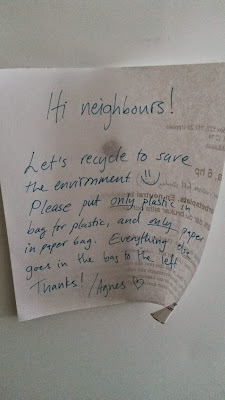 Hi neighbours!
Let's recycle to save
the envirnment
Please put only plastic in
bag for plastic, and only paper
in paper bag. Everything else
goes in the bag to the left
Thanks! /Agnes ♡